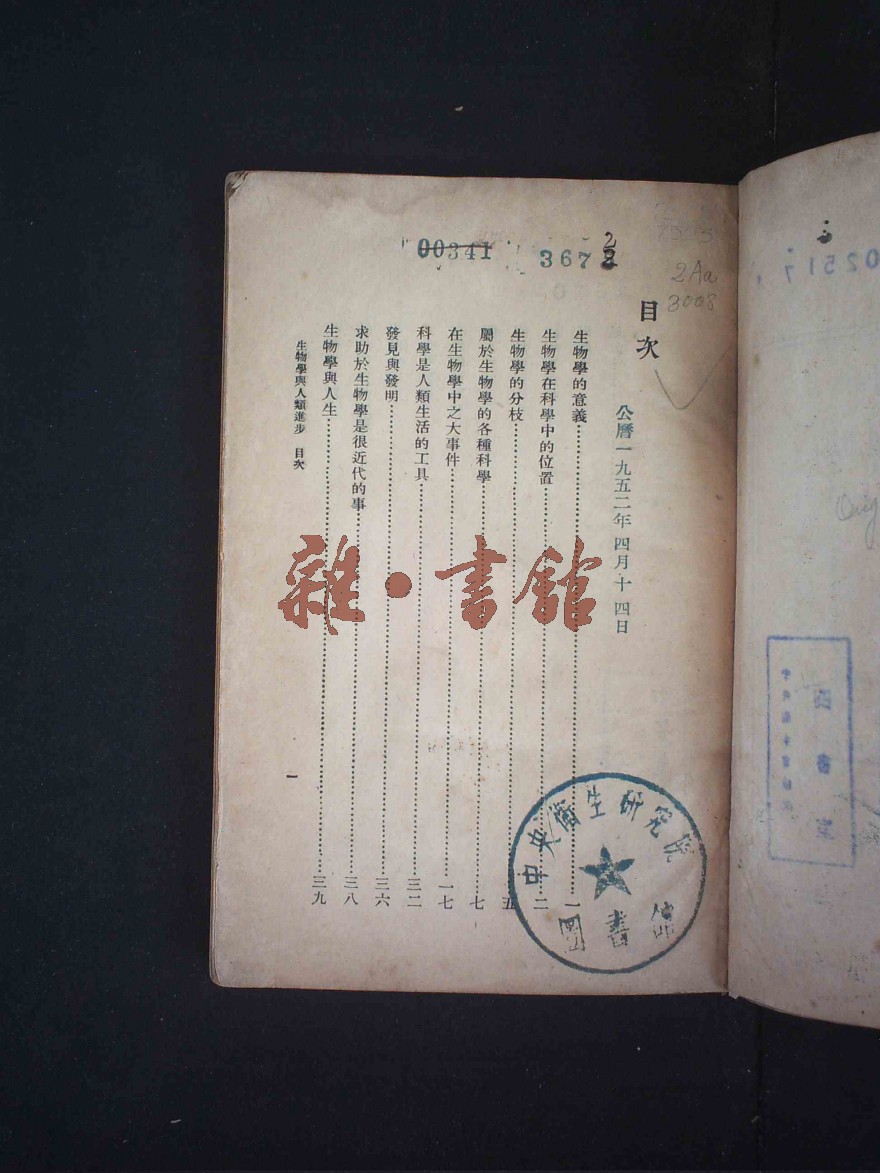 00341
3672
2Aa
3008
目次
公曆一九五二年四月十四日
生物學的意義……一
生物學在科學中的位置……二
生物學的分枝……五
屬於生物學的各種科學……七
在生物學中之大事件……一七
科學是人類生活的工具……三二
發見與發明……三六
求助於生物學是很近代的事……三八
生物學與人生……三九
生物學與人類進步 目次
一
雜·書館
中央衛生研究院
圖書館
02517